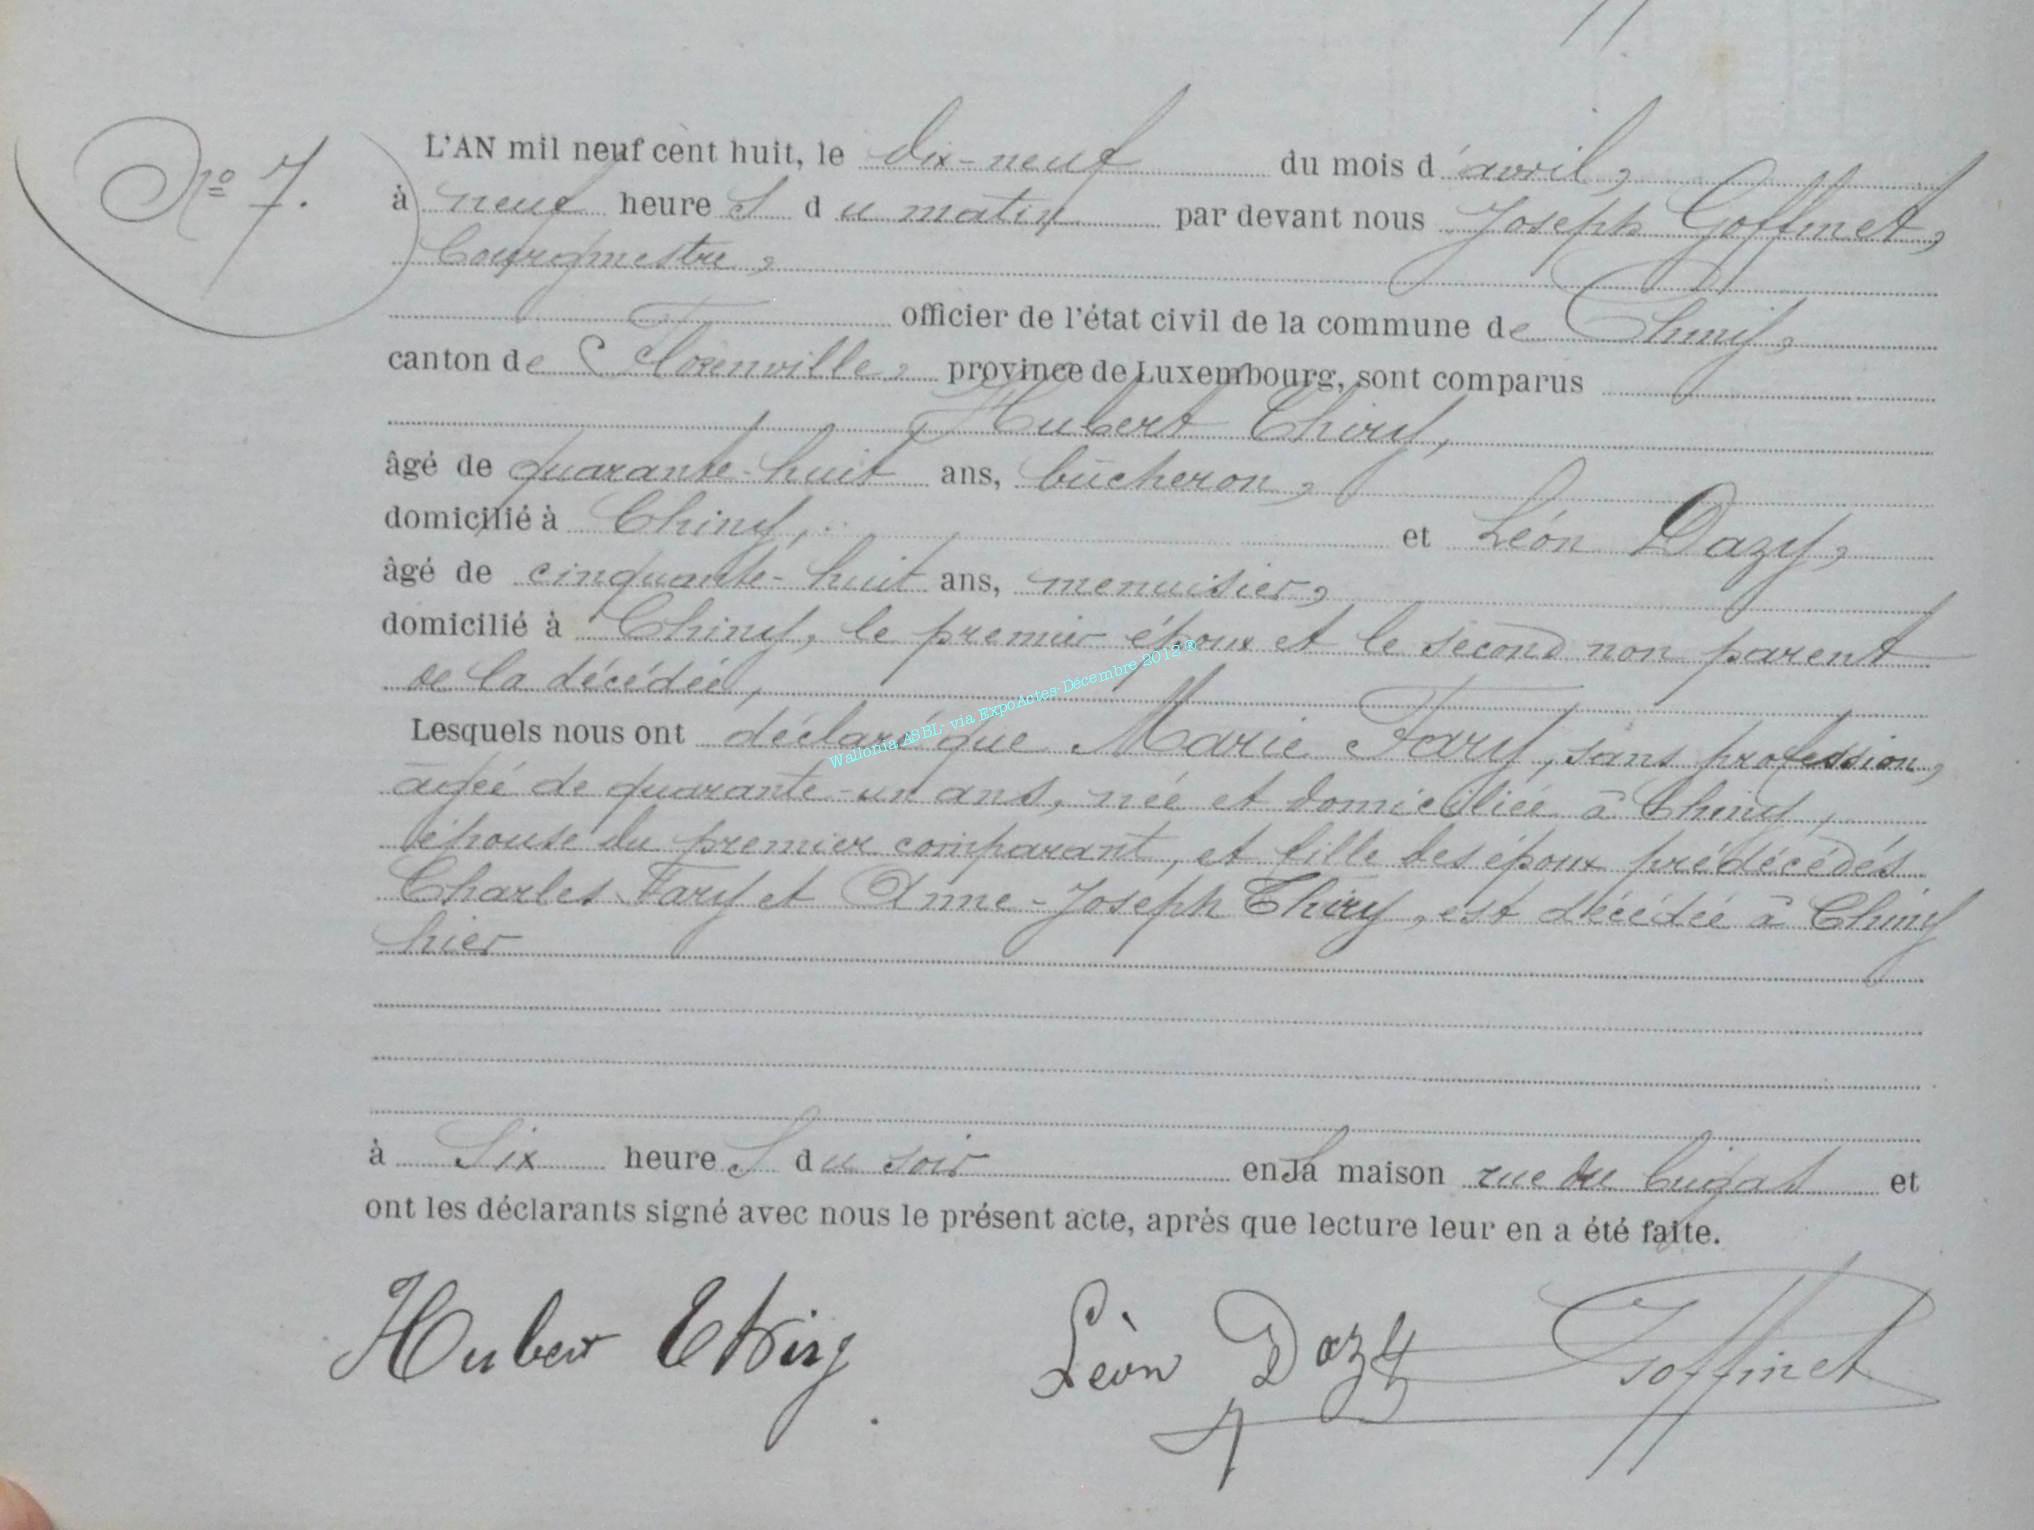 Nº 7.
L'AN mil neuf cent huit, le dix-neuf du mois d'avril,
à neuf heures du matin par devant nous Joseph Goffinet,
bourgmestre,
officier de l'état civil de la commune de Chiny,
canton de Florenville, province de Luxembourg, sont comparus
Hubert Thiry,
âgé de quarante-huit ans, bûcheron,
domicilié à Chiny, et Léon Dazy,
âgé de cinquante-huit ans, menuisier,
domicilié à Chiny, le premier époux et le second non parent
de la décédée,
Lesquels nous ont déclaré que Marie Fary, sans profession,
âgée de quarante-un ans, née et domiciliée à Chiny,
épouse du premier comparant, et fille des époux prédécédés
Charles Fary et Anne-Joseph Thiry, est décédée à Chiny
hier
à six heures du soir en sa maison rue du et
ont les déclarants signé avec nous le présent acte, après que lecture leur en a été faite.
Hubert Thiry Léon Dazy Goffinet
Wallonia ASBL- via ExpoActes-Décembre 2012 ®